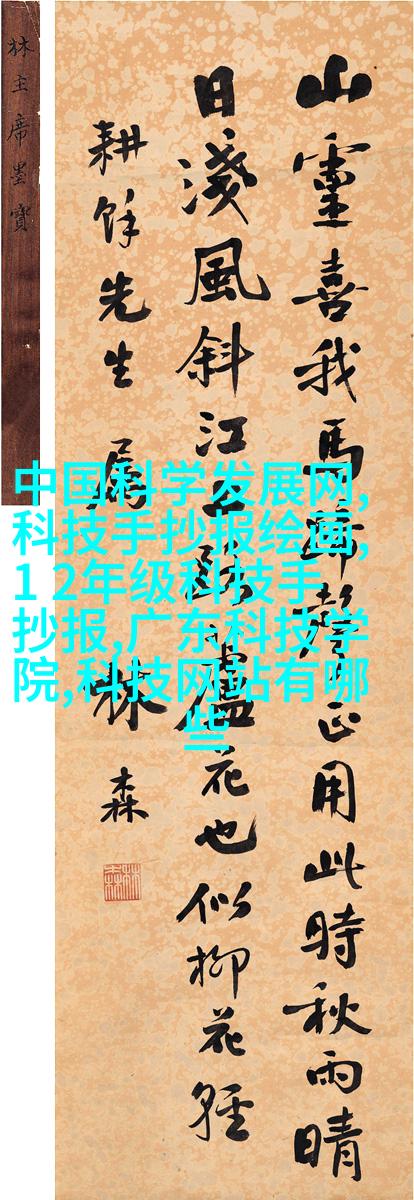 山靈喜我馬蹄聲正用此時秋雨晴
日淺風斜江上路蘆花也似柳花輕
耕餘先生屬
林森
林主席墨寶
中国科学发展网,
科技手抄报绘画,
1 2年级科技手
抄报,广东科技学
院,科技网站有哪
些